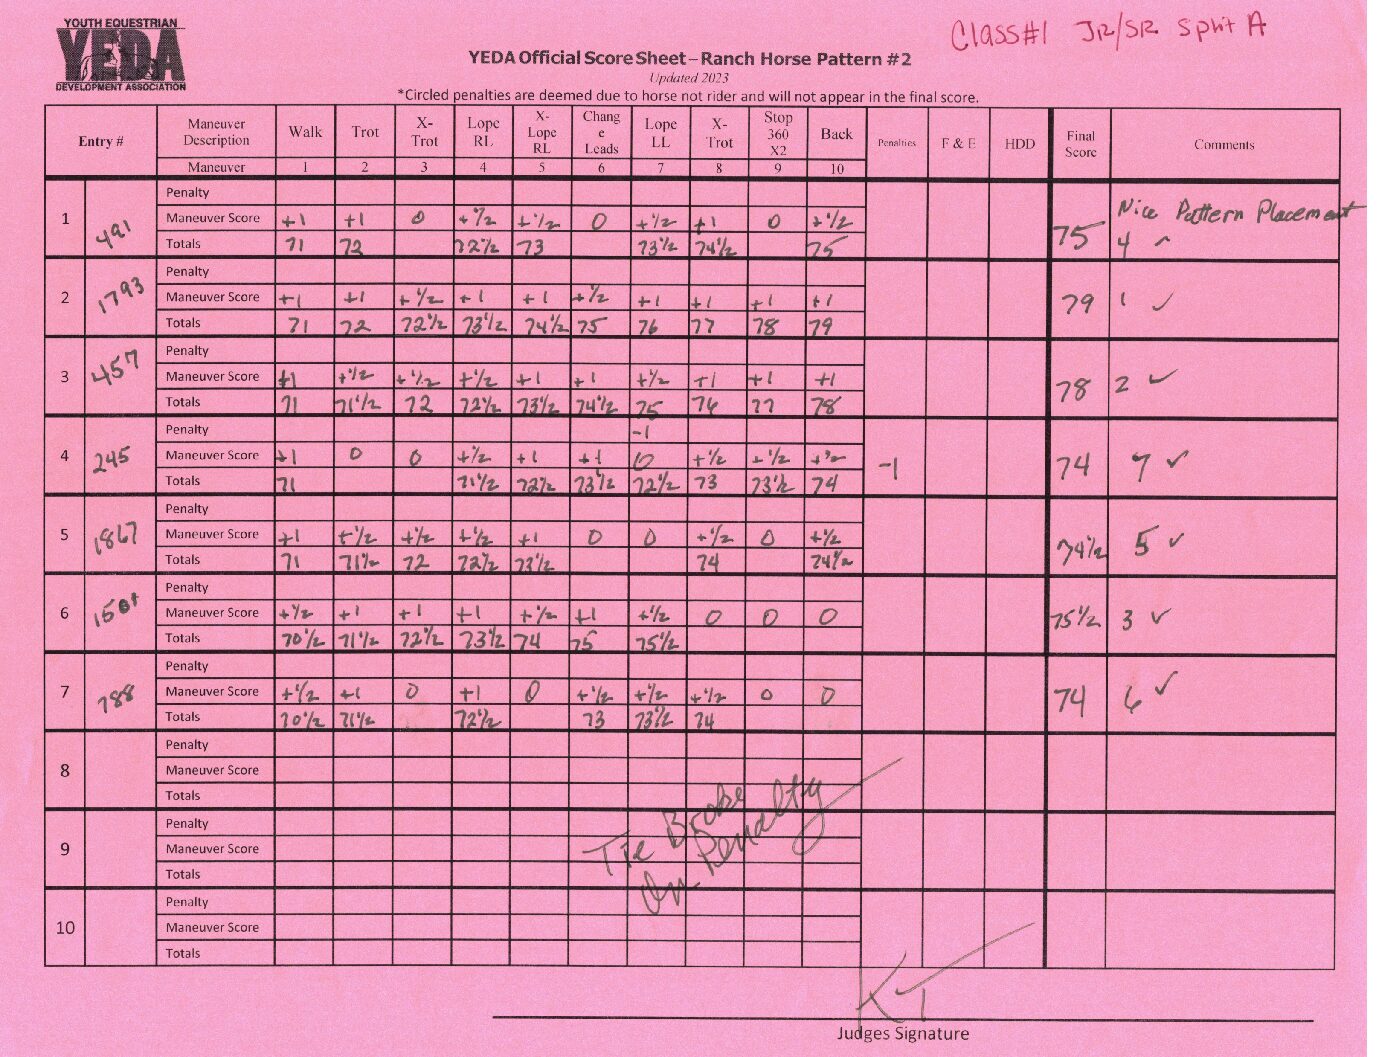 YOUTH EQUESTRIAN
YEDA
DEVELOPMENT ASSOCIATION
Class#1 JR/SR Split A
YEDA Official Score Sheet – Ranch Horse Pattern #2
Updated 2023
*Circled penalties are deemed due to horse not rider and will not appear in the final score.
Entry # Maneuver Description Walk Trot X-Trot Lope RL X-Lope RL Change Leads Lope LL X-Trot Stop 360 X2 Back Penalties F & E HDD Final Score Comments
Maneuver 1 2 3 4 5 6 7 8 9 10
1 491 Penalty
Maneuver Score +1 +1 0 +½ +½ 0 +½ +1 0 +½ Nice Pattern Placement
Totals 71 72 72½ 73 73½ 74½ 75 75 4
2 1793 Penalty
Maneuver Score +1 +1 +½ +1 +1 +½ +1 +1 +1 +1 79 1 ✓
Totals 71 72 72½ 73½ 74½ 75 76 77 78 79
3 457 Penalty
Maneuver Score +1 +½ +½ +½ +1 +1 +½ +1 +1 +1 78 2 ✓
Totals 71 71½ 72 72½ 73½ 74½ 75 76 77 78
4 245 Penalty -1
Maneuver Score +1 0 0 +½ +1 +1 0 +½ +½ +½ -1 74 7 ✓
Totals 71 71½ 72½ 73½ 72½ 73 73½ 74
5 1867 Penalty
Maneuver Score +1 +½ +½ +½ +1 0 0 +½ 0 +½ 74½ 5 ✓
Totals 71 71½ 72 72½ 73½ 74 74½
6 Penalty
Maneuver Score +½ +1 +1 +1 +½ +1 +½ 0 0 0 75½ 3 ✓
Totals 70½ 71½ 72½ 73½ 74 75 75½
7 788 Penalty
Maneuver Score +½ +1 0 +1 0 +½ +½ +½ 0 0 74 6 ✓
Totals 70½ 71½ 72½ 73 73½ 74
8 Penalty
Maneuver Score
Totals
9 Penalty
Maneuver Score
Totals
Tie Broke
On Penalty
10 Penalty
Maneuver Score
Totals
KT
Judges Signature